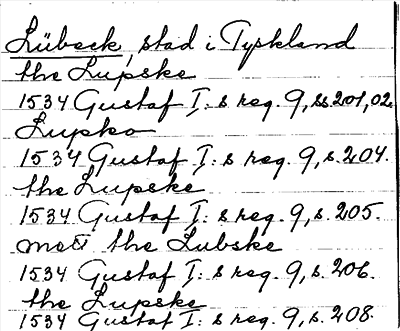 Lübeck, stad i Tyskland
the Lupske
1534 Gustaf I:s reg. 9, ss 201, 02.
Lupko
1534 Gustaf I:s reg. 9, s. 204.
the Lupske
1534 Gustaf I:s reg. 9, s. 205.
mott the Lubske
1534 Gustaf I:s reg. 9, s. 206.
the Lupske
1534 Gustaf I:s reg. 9, s. 208.